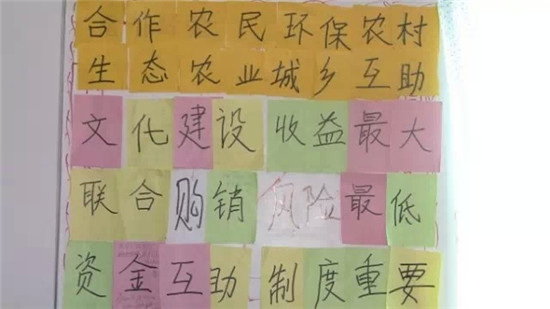 合作农民环保农村
生态农业城乡互助
文化建设 收益最大
联合购销 风险最低
资金互助 制度重要